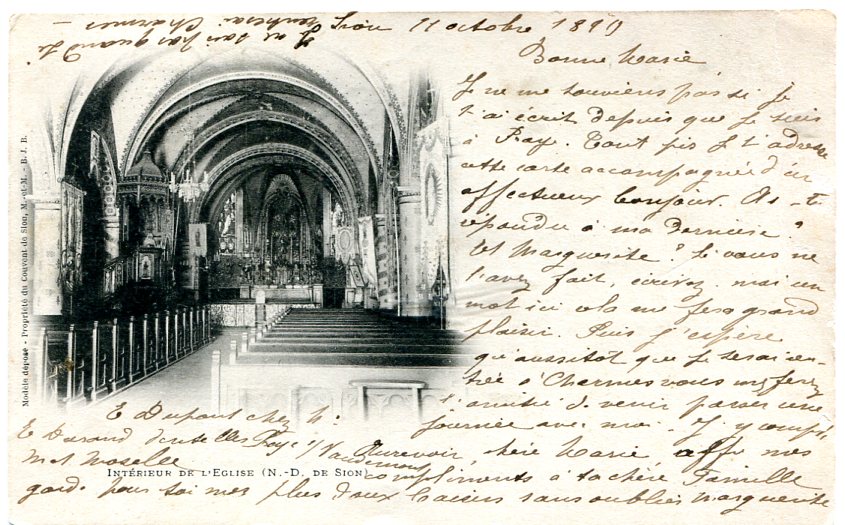 Sion 11 octobre 1899
Je ne sais pas quand je
rentrerai Charmes –
Bonne Marie
Je ne me souviens pas si je
t'ai écrit depuis que je suis
à Praye. Tant pis je t'adresse
cette carte accompagnée d'un
affectueux bonjour. As-tu
répondu à ma dernière ?
Et Marguerite ? Si vous ne
l'avez fait, écrivez moi un
mot ici cela me fera grand
plaisir. Puis j'espère
qu'aussitot que je serai en-
trée à Charmes vous me ferez
l'amitié de venir passer une
journée avec moi. J'y compte
Aurevoir, chère Marie, mes
compliments à ta chère Famille
gard. pour toi mes plus doux baisers sans oublier Marguerite
E Dupont chez M.
E Durand dentelles Praye s/s Vaudemont
M et Moselle
INTÉRIEUR DE L'EGLISE (N.-D. DE SION)
Modèle déposé - Propriété du Couvent de Sion, M.-et-M. - B. J. B.